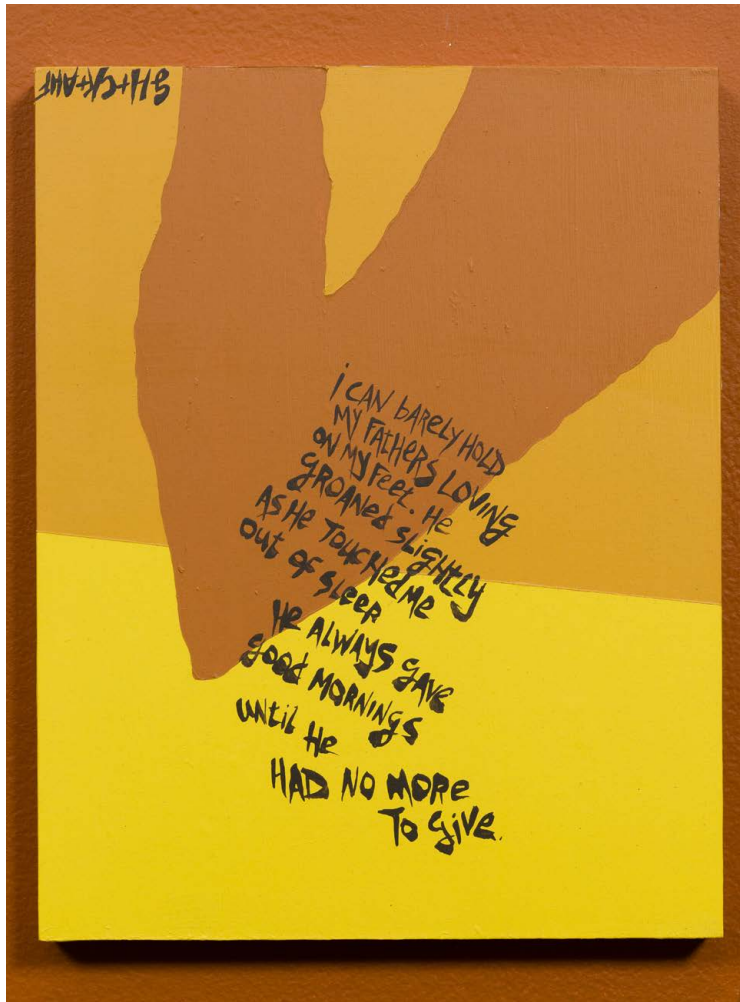 i CAN bARELY HOLD
MY FATHERS LOVING
ON MY FEET. HE
GROANEd SLIGHTLY
AS HE TOUCHED ME
OUT OF SLEEP
HE ALWAYS GAVE
GOOD MORNINGS
UNtiL HE
HAD NO MORE
TO GiVE.